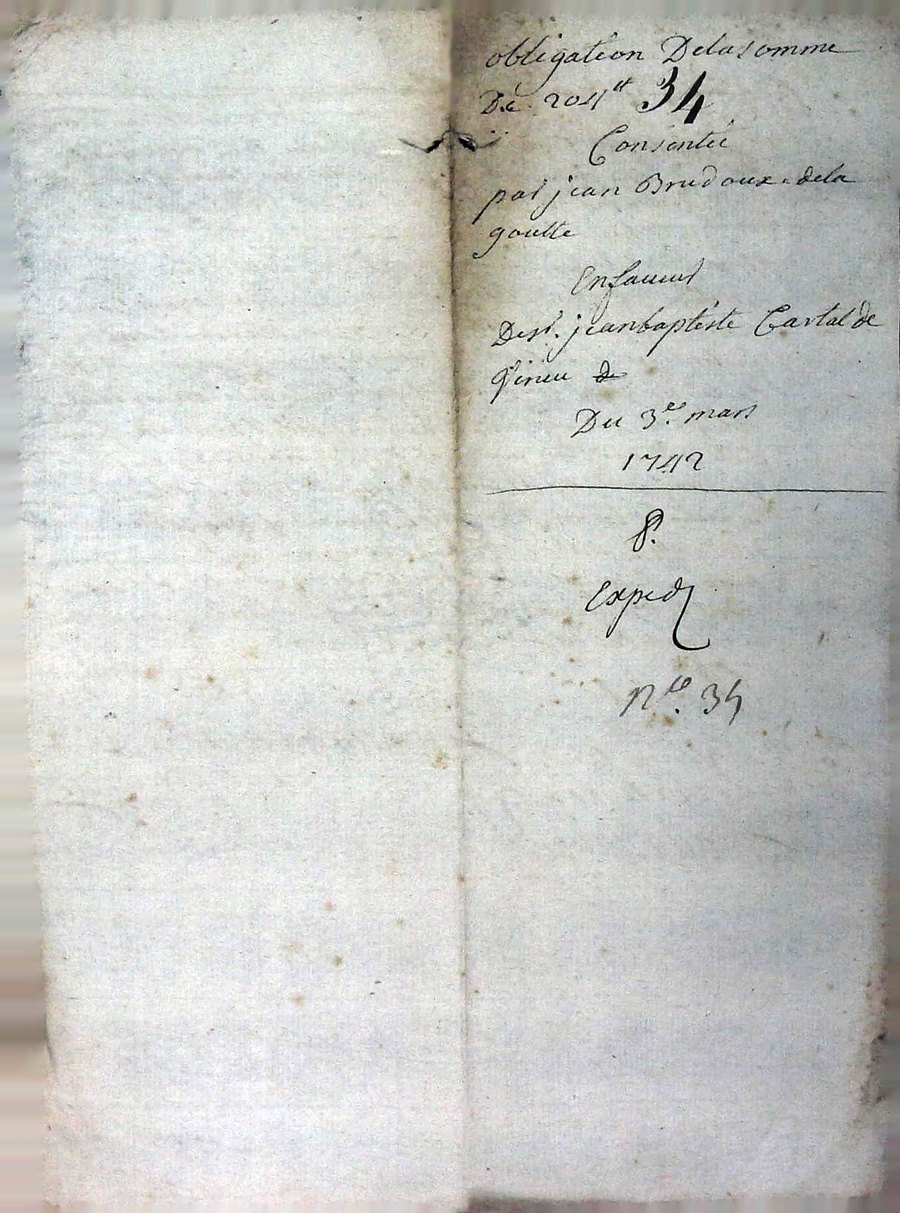 obligation Delasomme
De 204ₗₜ 34
Consentie
par jean Brudoux dela
goutte
Enfaveur
Desr. jeanbaptiste Cartal de
De
Du 3e. mars
1742
Exped
No. 34